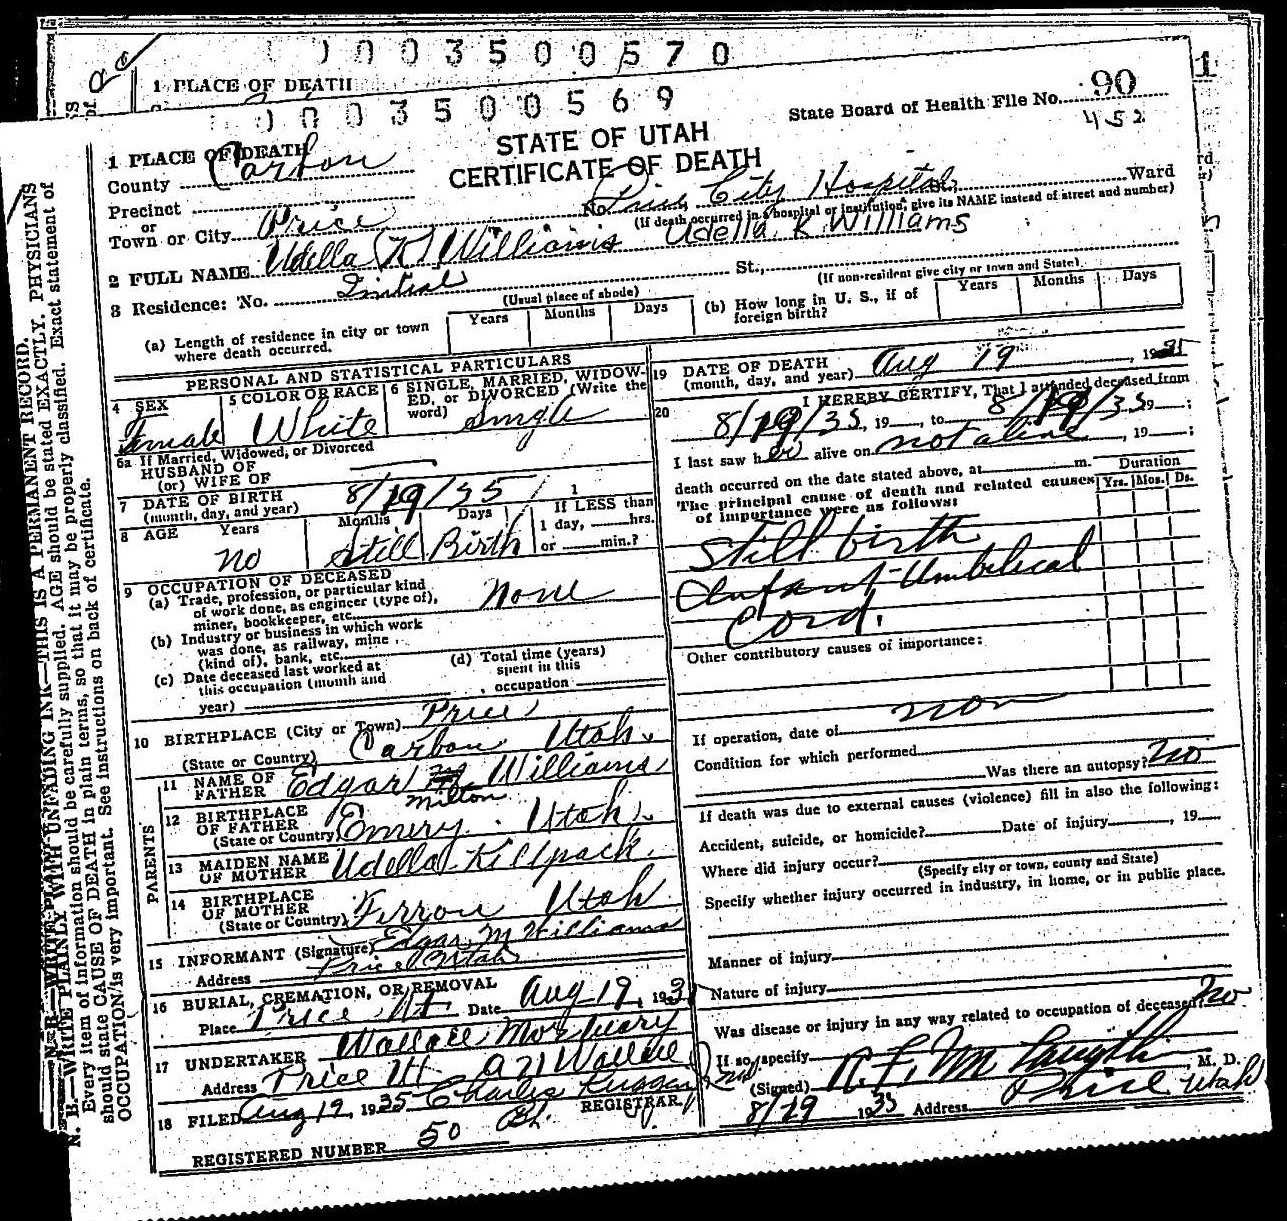 0003500570
1 PLACE OF DEATH
0003500569
State Board of Health File No. 90
452
STATE OF UTAH
CERTIFICATE OF DEATH
1 PLACE OF DEATH
County Carbon
Precinct
or
Town or City Price
No. Price City Hospital Ward
(If death occurred in a hospital or institution, give its NAME instead of street and number)
2 FULL NAME Udella (K) Williams Udella K Williams
Initial
3 Residence: No. St.,
(Usual place of abode) (If non-resident give city or town and State)
(a) Length of residence in city or town where death occurred. Years Months Days
(b) How long in U. S., if of foreign birth? Years Months Days
PERSONAL AND STATISTICAL PARTICULARS
4 SEX Female
5 COLOR OR RACE White
6 SINGLE, MARRIED, WIDOWED, or DIVORCED (Write the word) Single
6a If Married, Widowed, or Divorced
HUSBAND OF
(or) WIFE OF
7 DATE OF BIRTH (month, day, and year) 8/19/35
8 AGE Years no Months Still Days Birth
If LESS than 1 day, hrs.
or min.?
9 OCCUPATION OF DECEASED
(a) Trade, profession, or particular kind of work done, as engineer (type of), miner, bookkeeper, etc. None
(b) Industry or business in which work was done, as railway, mine (kind of), bank, etc.
(c) Date deceased last worked at this occupation (month and year)
(d) Total time (years) spent in this occupation
10 BIRTHPLACE (City or Town) Price
(State or Country) Carbon Utah
PARENTS
11 NAME OF FATHER Edgar Williams
Milton
12 BIRTHPLACE OF FATHER (State or Country) Emery Utah
13 MAIDEN NAME OF MOTHER Udella Killpack
14 BIRTHPLACE OF MOTHER (State or Country) Ferron Utah
15 INFORMANT (Signature) Edgar M Williams
Address Price Utah
16 BURIAL, CREMATION, OR REMOVAL
Place Price Ut Date Aug 19, 1935
17 UNDERTAKER Wallace Mortuary
Address Price Ut A N Wallace
18 FILED Aug 19, 1935 Charles Ruggeri
REGISTRAR.
REGISTERED NUMBER 50
19 DATE OF DEATH (month, day, and year) Aug 19, 1935
20 I HEREBY CERTIFY, That I attended deceased from
8/19/35, 19 , to 8/19/35 19 ;
I last saw her alive on not alive, 19 ;
death occurred on the date stated above, at m.
The principal cause of death and related causes of importance were as follows:
Duration
Yrs. Mos. Ds.
Still birth
Infant Umbilical
Cord.
Other contributory causes of importance:
If operation, date of non
Condition for which performed
Was there an autopsy? no
If death was due to external causes (violence) fill in also the following:
Accident, suicide, or homicide? Date of injury , 19
Where did injury occur?
(Specify city or town, county and State)
Specify whether injury occurred in industry, in home, or in public place.
Manner of injury
Nature of injury
Was disease or injury in any way related to occupation of deceased? no
If so, specify
(Signed) , M. D.
8/19 1935 Address Price Utah
N. B.—WRITE PLAINLY WITH UNFADING INK—THIS IS A PERMANENT RECORD.
Every item of information should be carefully supplied. AGE should be stated EXACTLY. PHYSICIANS
should state CAUSE OF DEATH in plain terms, so that it may be properly classified. Exact statement of
OCCUPATION is very important. See instructions on back of certificate.